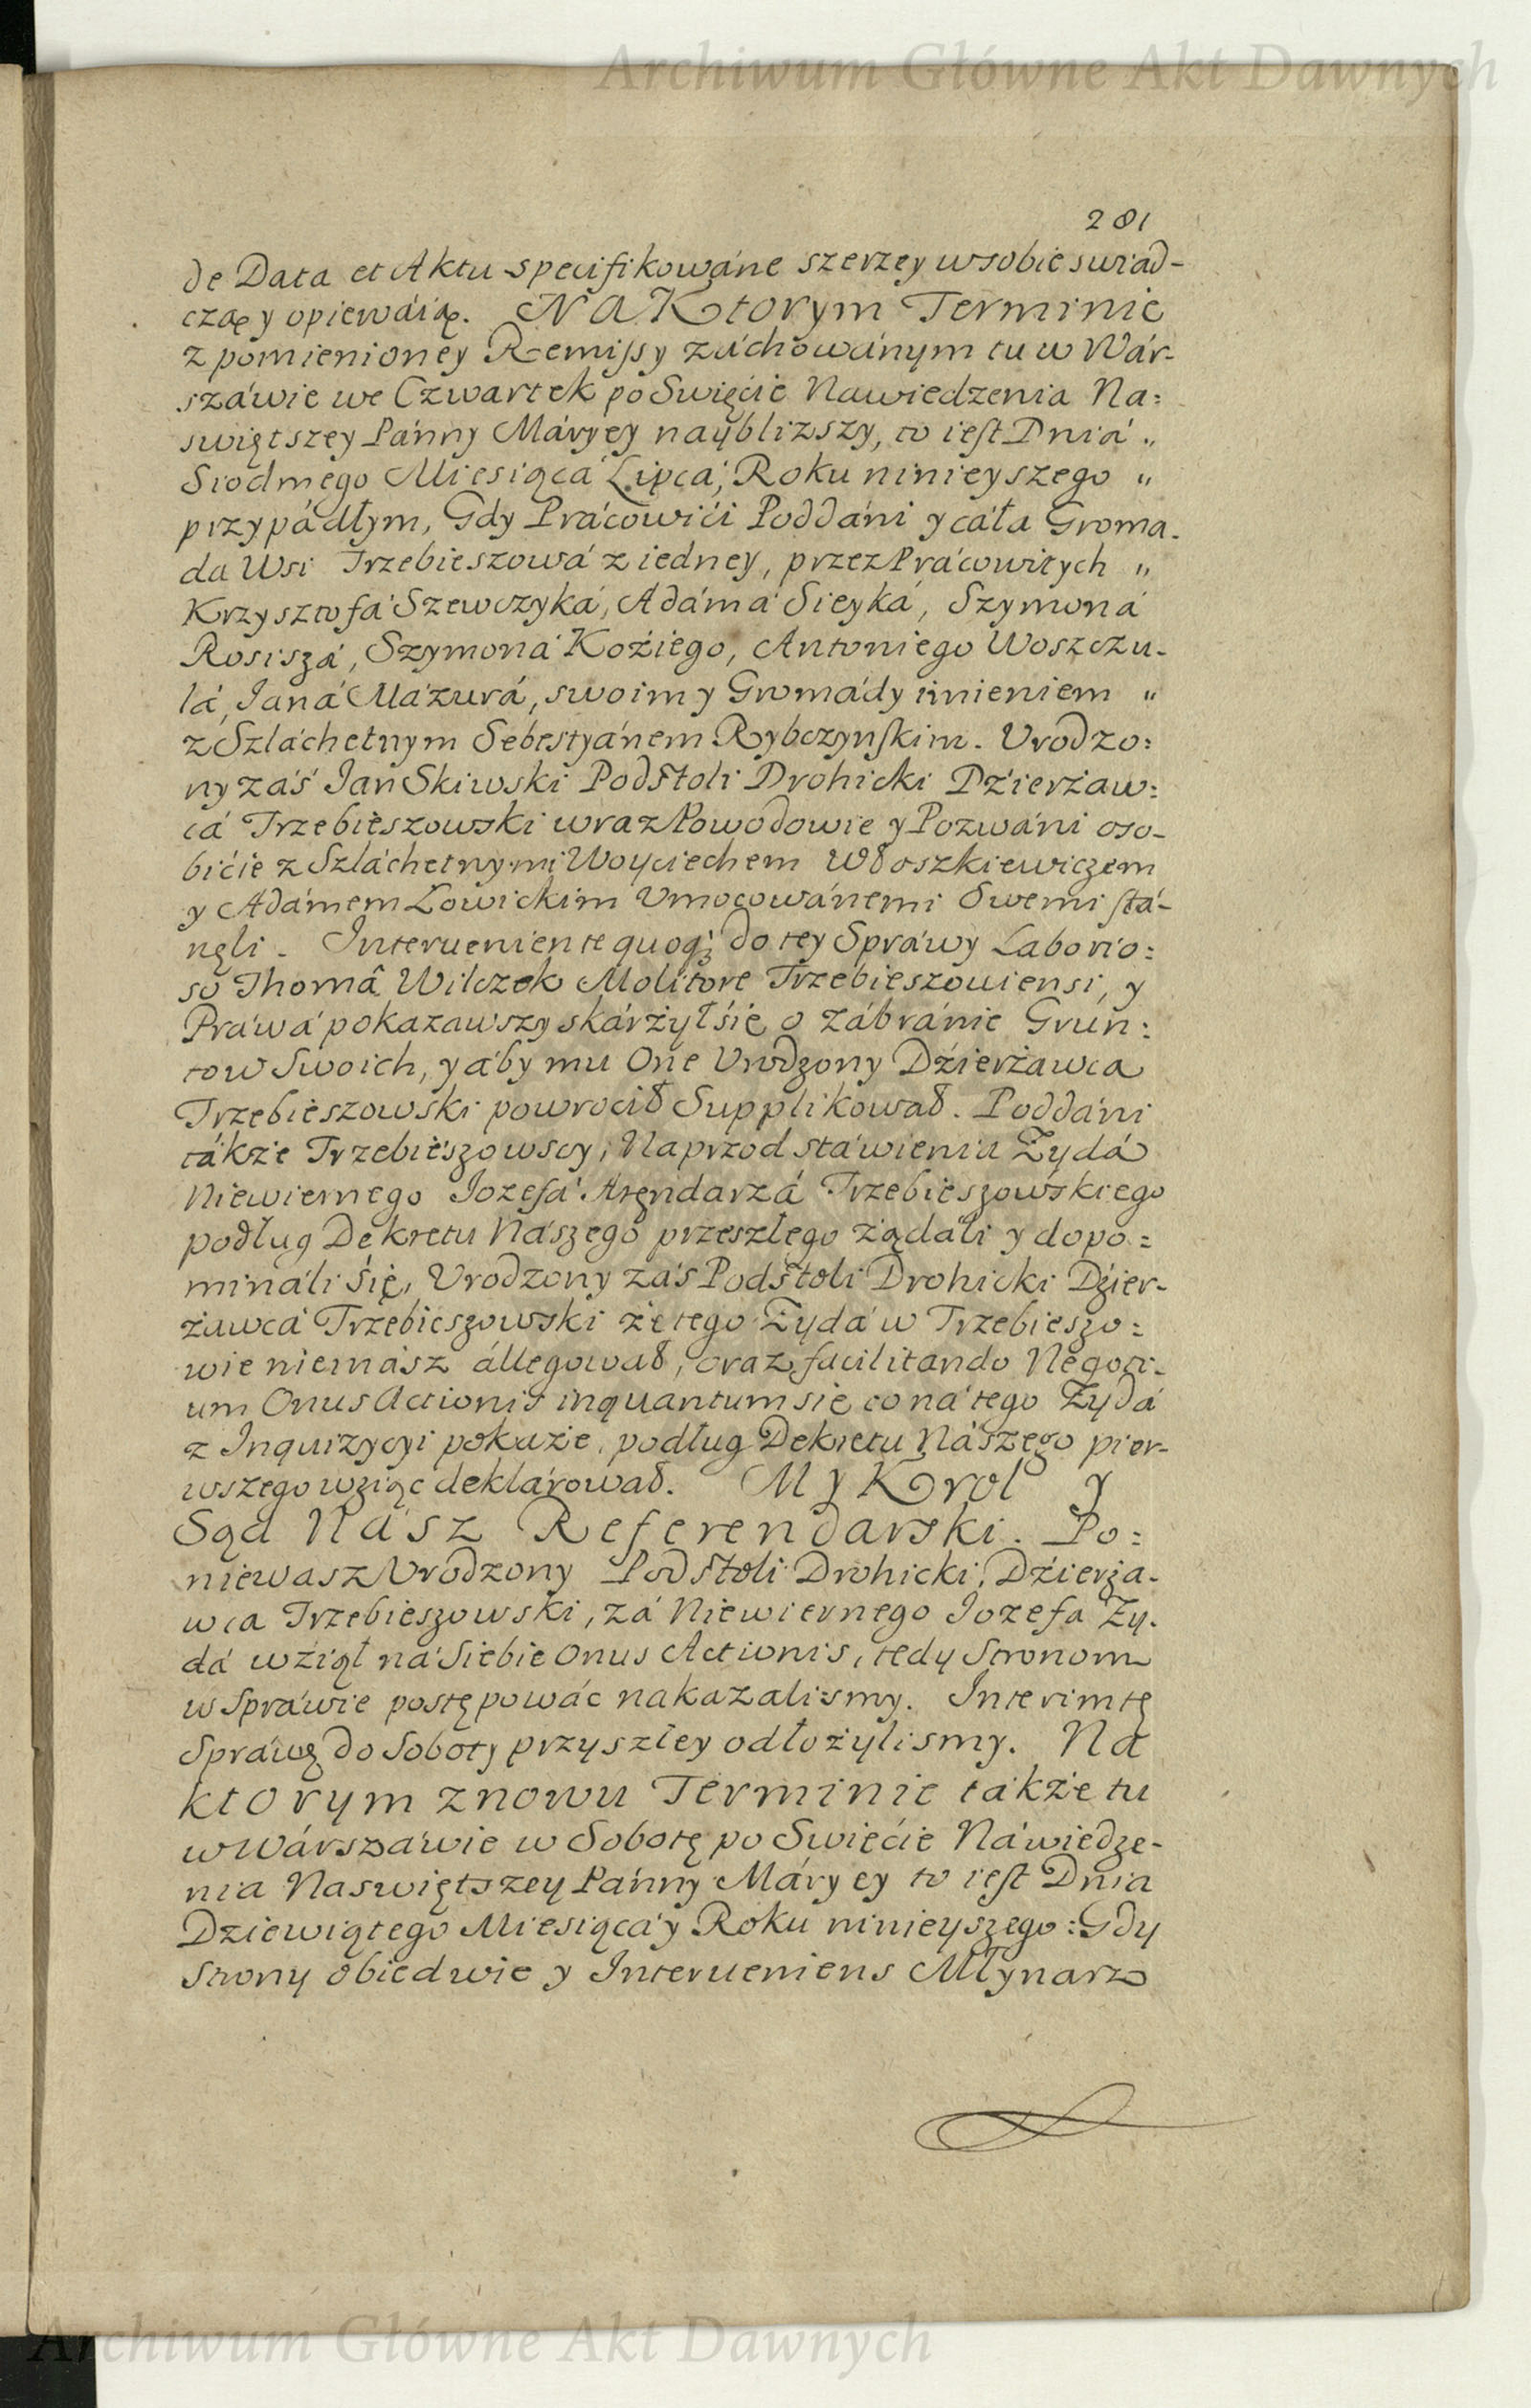 Archiwum Główne Akt Dawnych
281
de Data et Aktu specifikowáne szerzey w sobie swiad-
czą y opiewáią. NA Ktorym Terminie
z pomienioney Remissy záchowánym tu w Wár-
száwie we Czwartek po Swięćie Nawiedzenia Na=
swiętszey Pánny Máryey naybliższy, to iest Dniá „
Siodmego Miesiącá Lipcá, Roku ninieyszego „
przypádłym, Gdy Prácowići Poddáni y cáła Groma-
da Wsi Trzebieszowá z iedney, przez Prácowitych „
Krzysztofá Szewczyká, Adámá Sieyká, Szymoná
Rosiszá, Szymoná Koźiego, Antoniego Woszczu-
lá, Janá Mázurá, swoim y Gromády imieniem „
z Szláchetnym Sebestyánem Rybczynskim. Vrodzo=
ny záś Jan Skiwski Podstoli Drohicki Dźierżaw=
cá Trzebieszowski wraz Powodowie y Pozwáni oso-
bićie z Szláchetnymi Woyciechem Włoszkiewiczem
y Adámem Łowickim Vmocowánemi Swemi stá-
nęli. Interueniente quoq; do tey Spráwy Laborio=
so Thomâ Wilczek Molitore Trzebieszouiensi, y
Práwá pokazawszy skárżył śię o zábránie Grun=
tow Swoich, y áby mu One Vrodzony Dźierżawca
Trzebieszowski powroćił Supplikował. Poddáni
tákże Trzebieszowscy, Naprzod stáwienia Żydá
Niewiernego Jozefá Arędarzá Trzebieszowskiego
podług Dekretu Nászego przeszłego żądáli y dopo=
mináli śię, Vrodzony záś Podstoli Drohicki Dźier-
żawcá Trzebieszowski że tego Żydá w Trzebieszo=
wie niemász állegował, oraz facilitando Negoti-
um Onus Actionis inquantum się co ná tego Żydá
z Inquizycyi pokaże, podług Dekretu Nászego pier-
wszego wziąc deklárował. My Krol y
Sąd Nász Referendarski. Po=
niewasz Vrodzony Podstoli Drohicki, Dźierża-
wca Trzebieszowski, zá Niewiernego Jozefa Ży-
dá wźiął ná Siebie Onus Actionis, tedy Stronom
w Spráwie postępowáć nakazalismy. Interim tę
Spráwę do Soboty przyszłey odłożylismy. Na
ktorym znowu Terminie tákże tu
w Wárszáwie w Sobotę po Swięćie Náwiedze-
nia Naswiętszey Pánny Máryey to iest Dnia
Dziewiątego Miesiącá y Roku ninieyszego: Gdy
Strony obiedwie y Interueniens Młynarz
Archiwum Główne Akt Dawnych